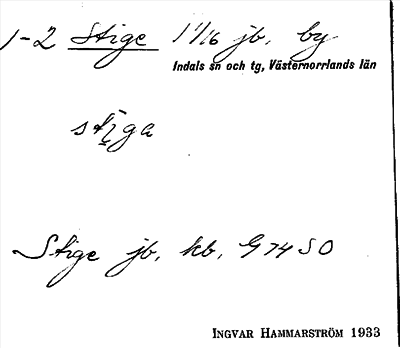 1-2 Stige 1 1/16 jb, by
Indals sn och tg, Västernorrlands län
stiga
Stige jb, kb, G 74 SO
INGVAR HAMMARSTRÖM 1933